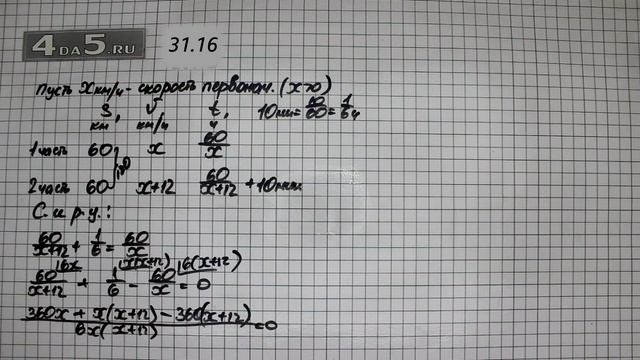 4DA5.RU
31.16
Пусть x км/ч - скорость первонач. (x>0)
S, км   v км/ч   t, ч   10 мин = 10/60 = 1/6 ч
1 часть 60   x   60/x
2 часть 60   x+12   60/(x+12) + 10 мин
С. и р. у.:
60/(x+12) + 1/6 = 60/x
60/(x+12) |6x + 1/6 |x(x+12) - 60/x |6(x+12) = 0
(360x + x(x+12) - 360(x+12))/(6x(x+12)) = 0